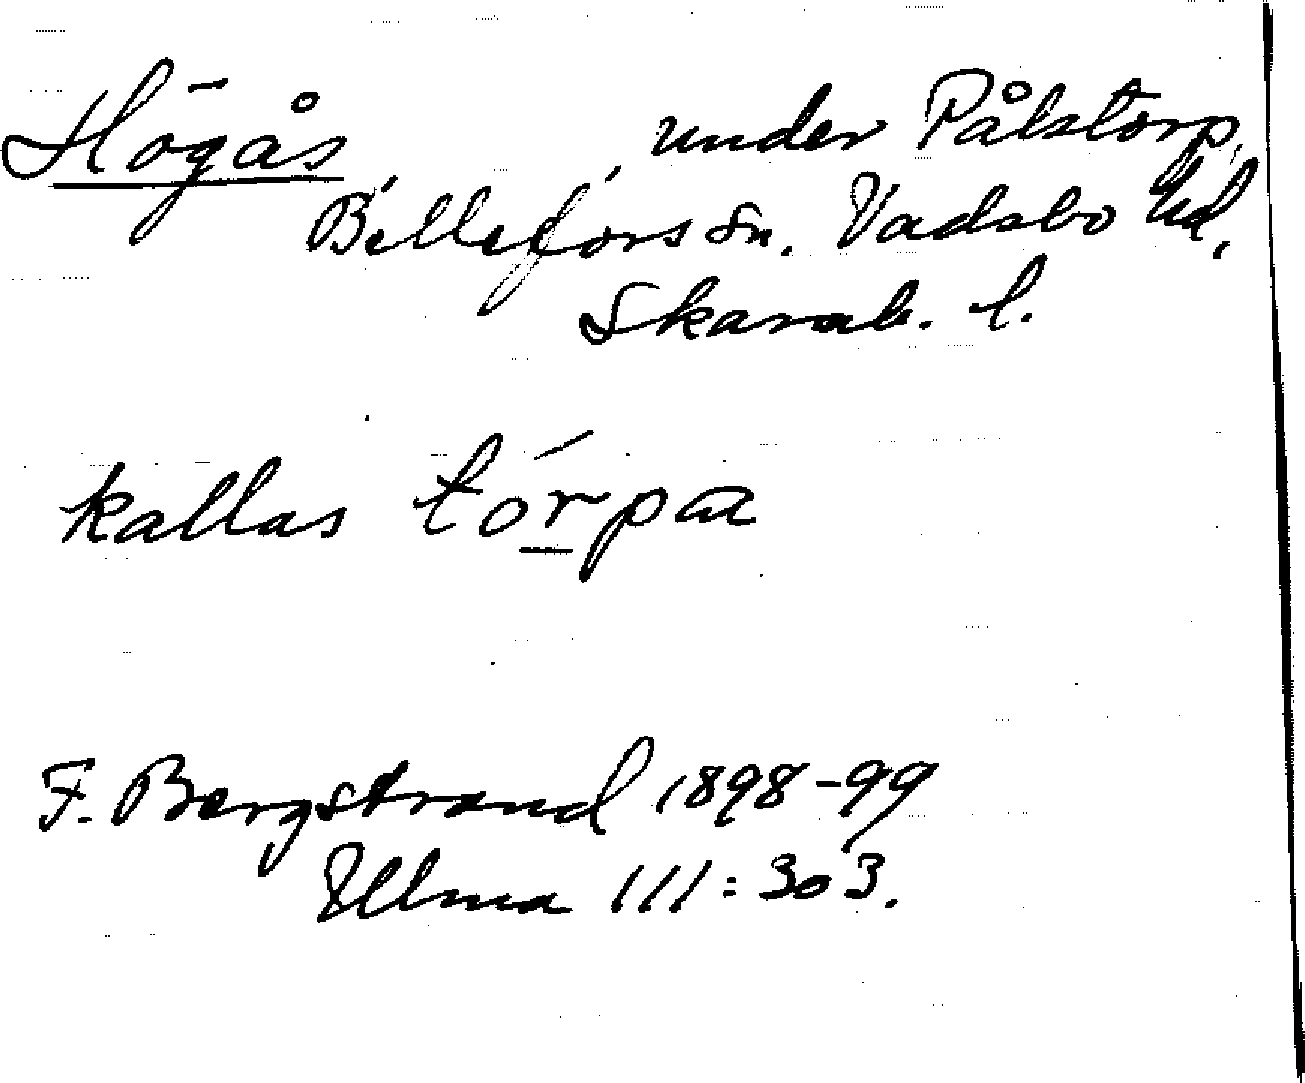 Högås under Pålstorp,
Bällefors sn. Vadsbo hd,
Skarab. l.
kallas tórpaa
F. Bergstrand 1898-99
Ullma 111:303.